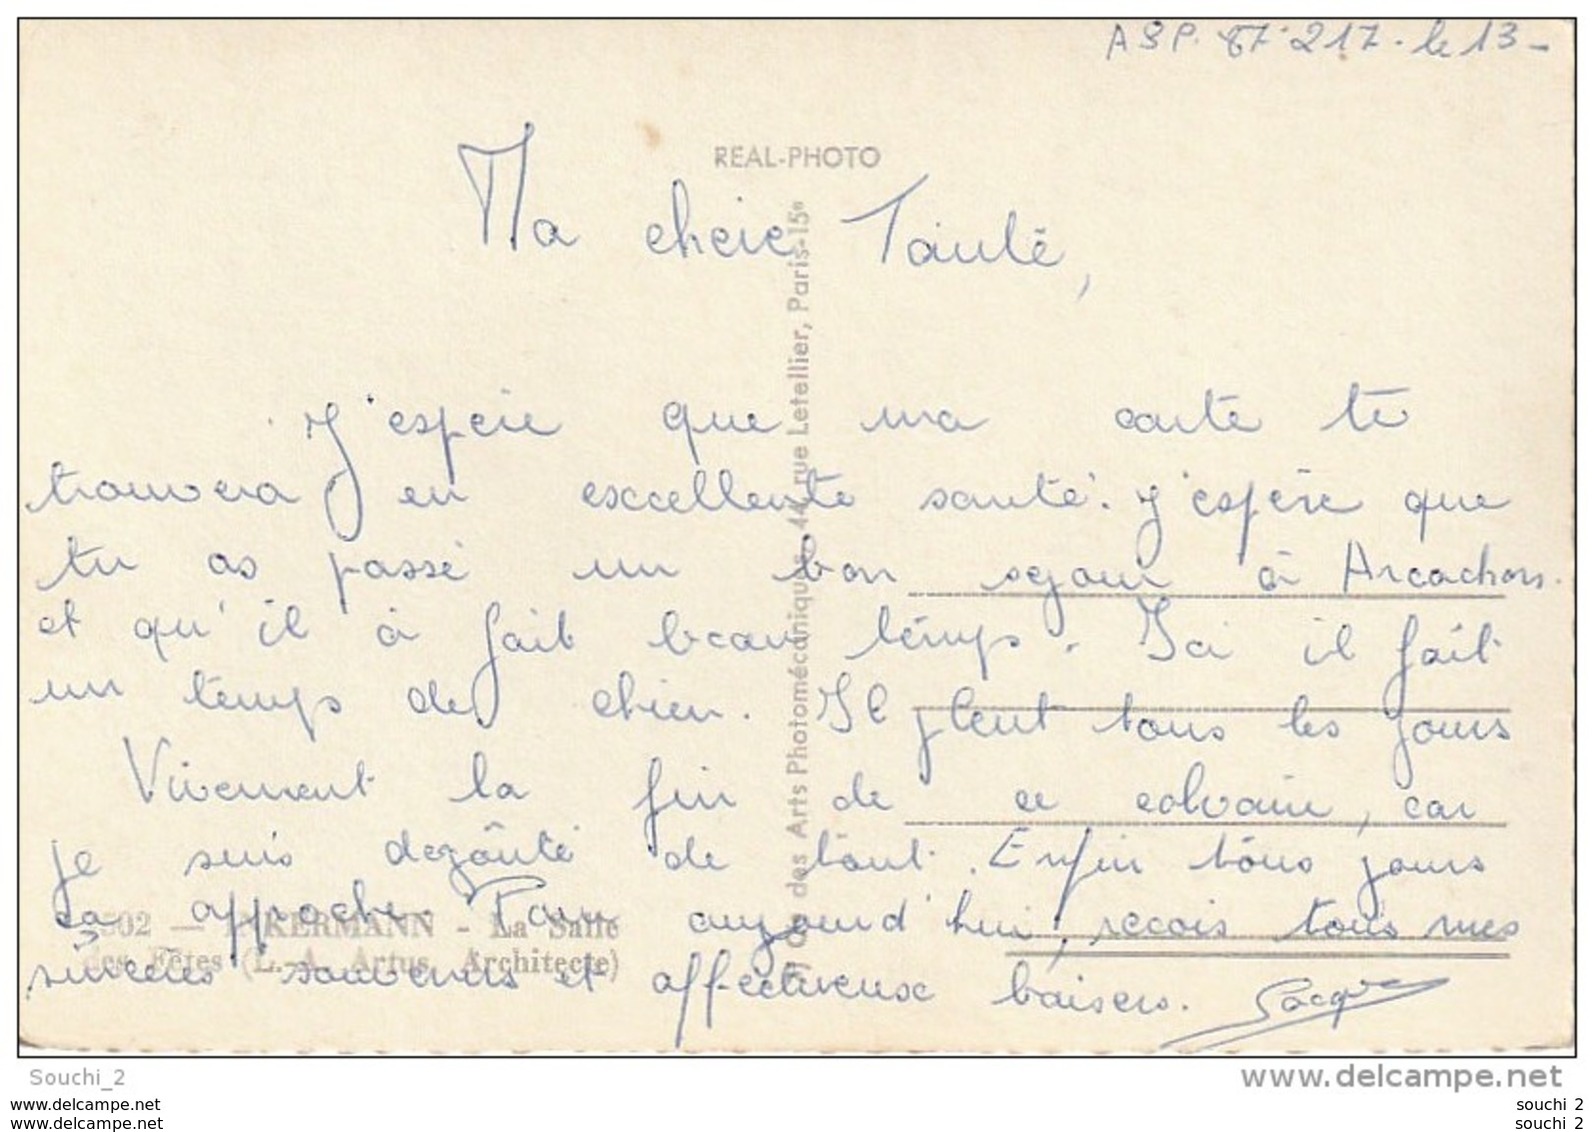 ASP. 87.217. le 13-
REAL-PHOTO
Ma cherie Tanté,
J'espère que ma carte te
trouvera en excellente santé. J'espère que
tu as passé un bon sejour à Arcachon.
et qu'il à fait beau temps. Ici il fait
un temps de chien. Il pleut tous les jours
Vivement la fin de ce calvaire, car
je suis dezoûté de tout. Enfin tous jours
ça approche. Pour aujourd'hui, recois tous mes
sinceres souvenirs et affectueux baisers. Jacques
des Arts Photomécaniques, 44, rue Letellier, Paris-15e
902 — KERMANN - La Salle
des Fêtes (L.-A. Artus, Architecte)
Souchi_2
www.delcampe.net
souchi 2
souchi 2
souchi 2
souchi 2